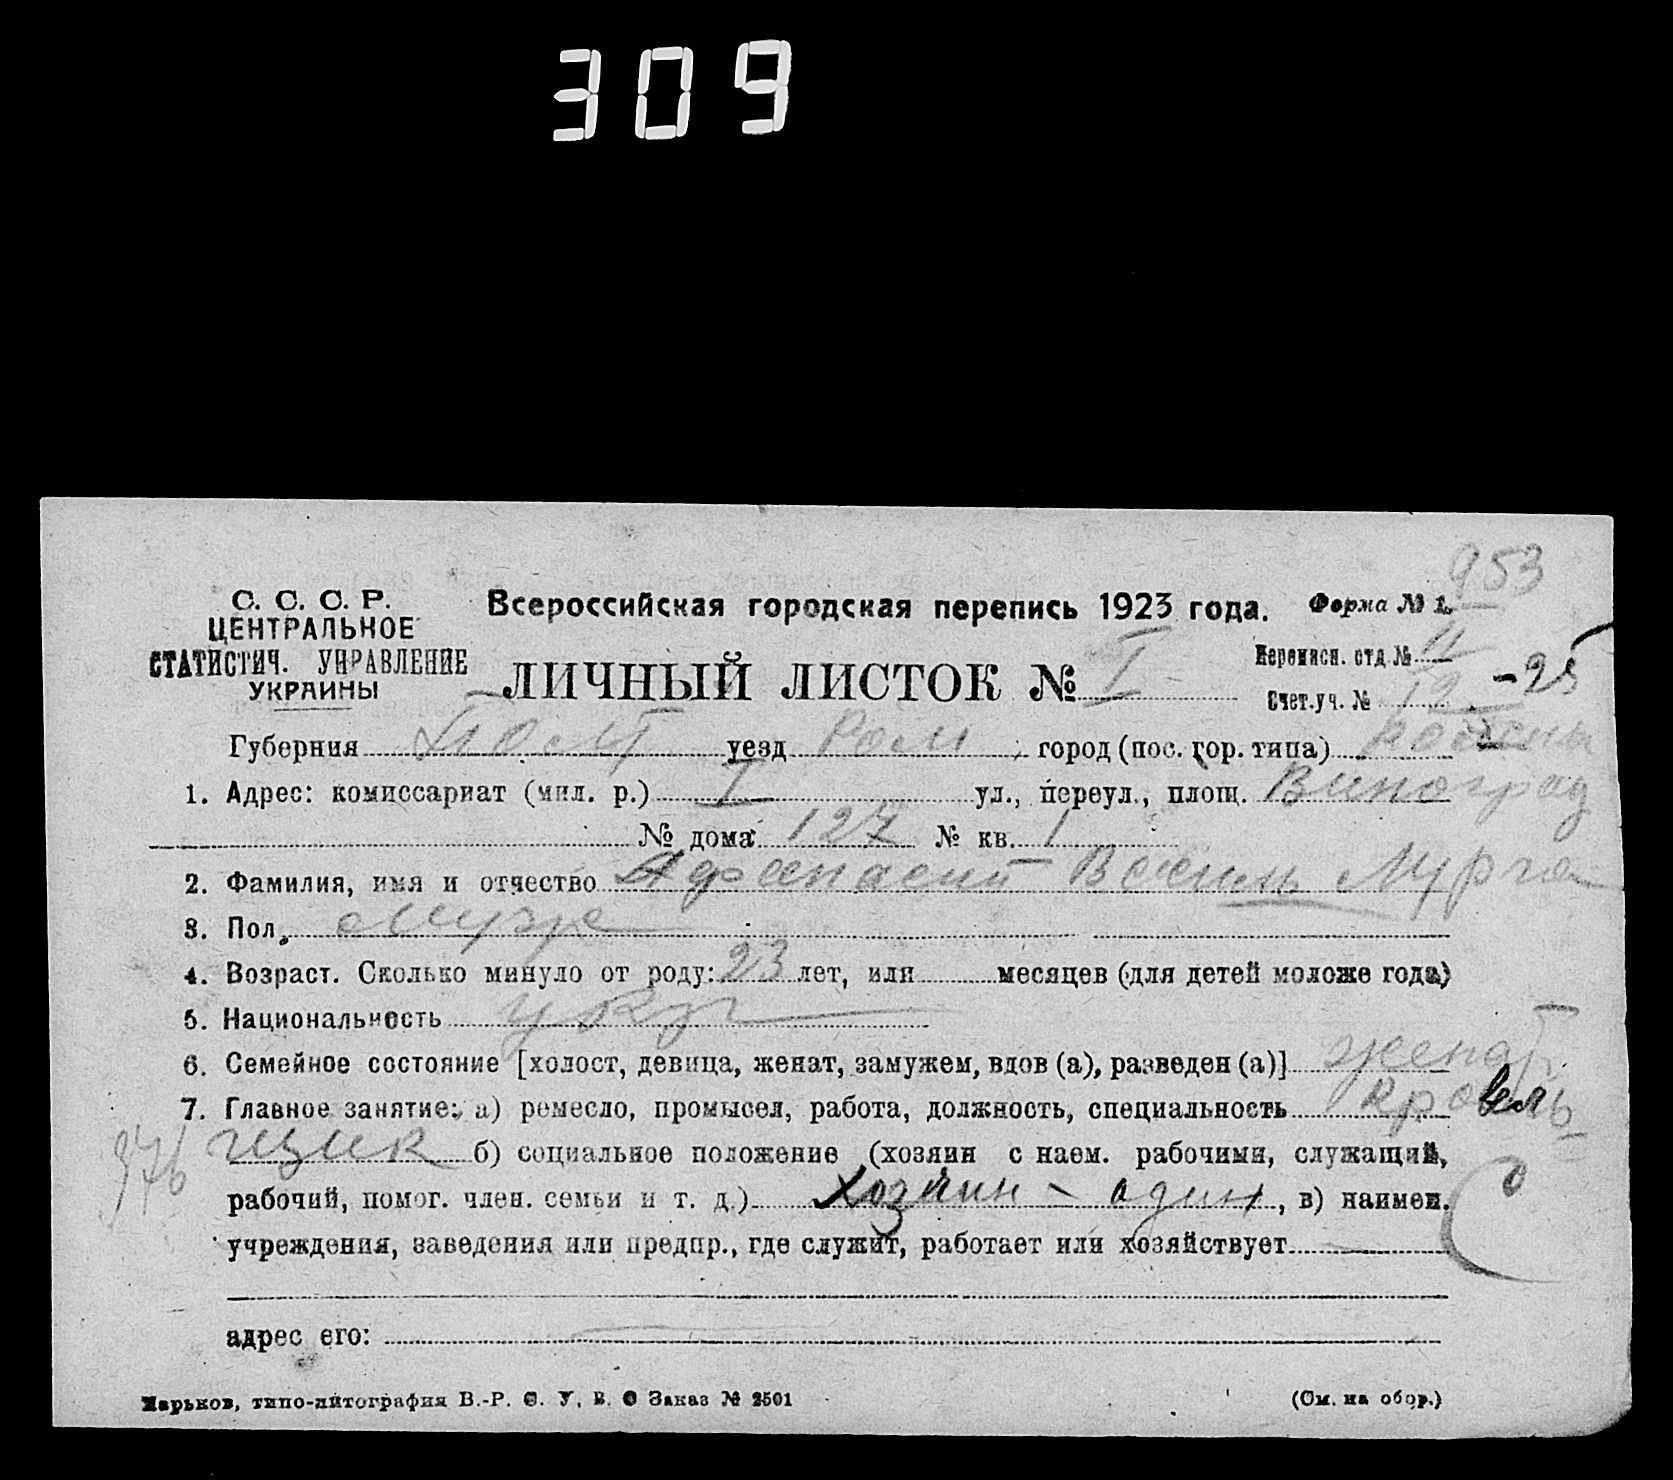 309
953
С. С. С. Р.
ЦЕНТРАЛЬНОЕ
СТАТИСТИЧ. УПРАВЛЕНИЕ
УКРАИНЫ
Всероссийская городская перепись 1923 года. Форма № 1.
ЛИЧНЫЙ ЛИСТОК № I
Переписн. отд. № 11
Счет.уч. № 12 -25
Губерния Полт уезд Ром город (пос. гор. типа)
1. Адрес: комиссариат (мил. р.) I ул., переул., площ. Виноград
№ дома 127 № кв. 1
2. Фамилия, имя и отчество Афанасий Василь
3. Пол муж
4. Возраст. Сколько минуло от роду: 23 лет, или месяцев (для детей моложе года)
5. Национальность укр
6. Семейное состояние [холост, девица, женат, замужем, вдов (а), разведен (а)] женат
7. Главное занятие: а) ремесло, промысел, работа, должность, специальность кровель
376 щик б) социальное положение (хозяин с наем. рабочими, служащий,
рабочий, помог. член. семьи и т. д.) хозяин - один, в) наимен. 0
учреждения, заведения или предпр., где служит, работает или хозяйствует
адрес его:
Харьков, типо-литография В.-Р. С. У. В. О Заказ № 2501 (См. на обор.)